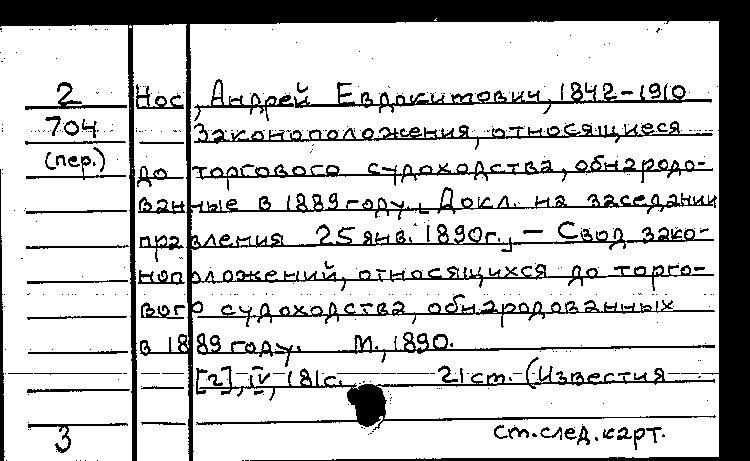 2 Нос, Андрей Евдокимович, 1842-1910
704 Законоположения, относящиеся
(пер.) до торгового судоходства, обнародо-
ванные в 1889 году. Докл. на заседании
правления 25 янв. 1890г. — Свод зако-
ноположений, относящихся до торго-
вого судоходства, обнародованных
в 1889 году. М., 1890.
[2], IV, 181с. 21 cm. (Известия
3 см.след.карт.